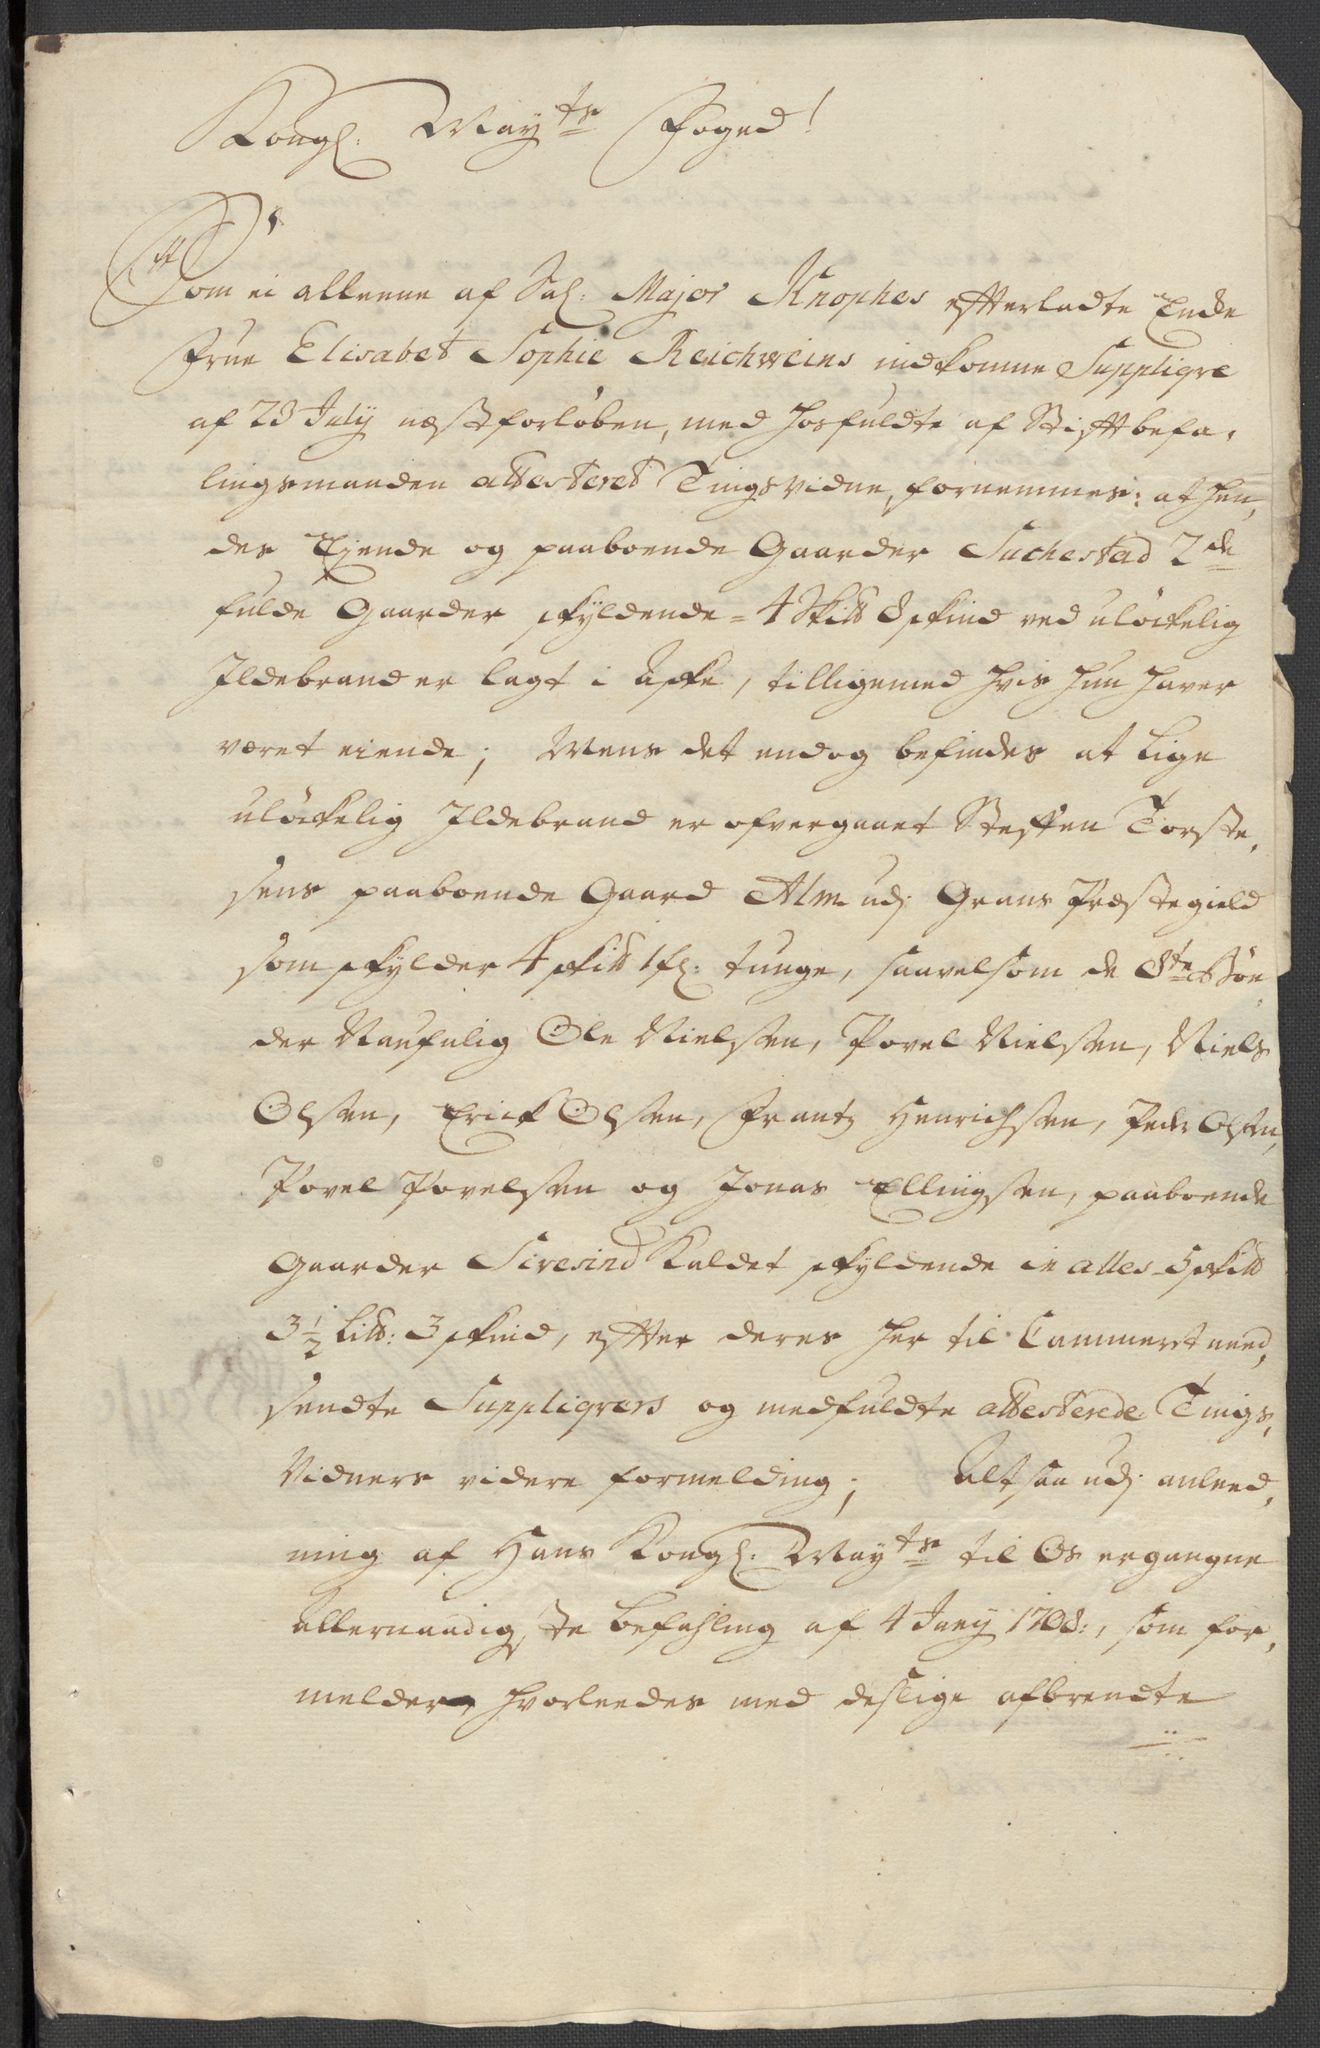 Kongl: Mayts Foged!
Som ei alleene af Sal: Major Knophes effterladte Encke
Frue Elisabet Sophie Reichweins indkomne Suppliqve
af 23 July næstforløben, med hosfuldte af Stiftbefa,
lingsmanden attesteret Tingsvidne, fornemmes: at hen,
des Ejende og paaboende Gaarder Suchestad 2de
fulde Gaarder skyldende = 4 Skild 8 skind ved uløckelig
Ildebrand er lagt i Aske, tilligemed hvis hun haver
været eiende; Mens det endog befindes at lige
uløckelig Ildebrand er ofvergaaet Steffen Torste,
sens paaboende Gaard Alm udj Grans Præstegield
som skylder 4 skild 1 fl: tunge, saavelsom de 8te Bøn
der Naufnlig Ole Nielsen, Povel Nielsen, Niels
Olsen, Erick Olsen, Frantz Henrichsen, Peder Olsen,
Povel Povelsen og Jonas Ellingsen, paaboende
Gaarder Siresind kaldet skyldende in alles 5 skild
3½ Lild: 3 skind, effter deres her til Cammeret need,
sendte Suppliqvers og medfuldte attesterede Tings,
Vidners videre formelding; Alt saa udj anleed,
ning af Hans Kongl: Mayts til Os ergangne
Allernaadigste befahling af 4 Juny 1708:, som for,
melder, hvorleedes med deslige afbrendte